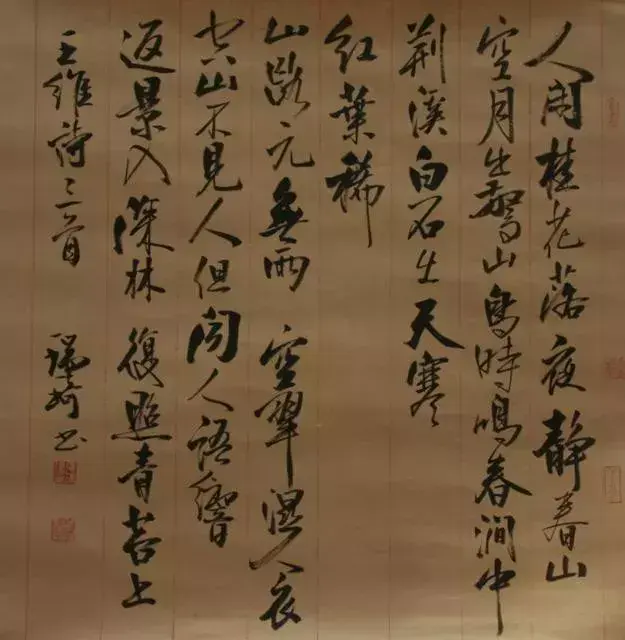 人閑桂花落夜靜春山
空月出驚山鳥時鳴春澗中
荆溪白石出天寒
紅葉稀
山路元無雨 空翠濕人衣
空山不見人但聞人語響
返景入深林 復照青苔上
王維詩三首 书